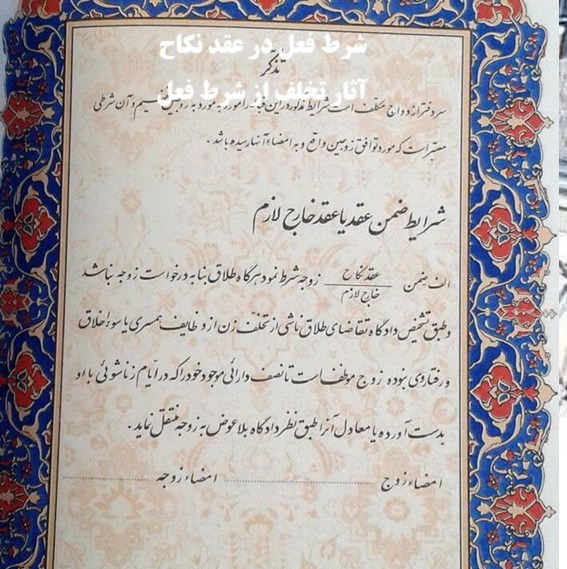 شرط فعل در عقد نکاح
تذکر
آثار تخلف از شرط فعل
سردفتر ازدواج مکلف است شرایط مذکور در این قباله را مورد به مورد به زوجین تفهیم و آن شرطی
معتبر است که مورد توافق زوجین واقع و به امضاء آنها رسیده باشد.
شرایط ضمن عقد یا عقد خارج لازم
الف ضمن عقد نکاح / خارج لازم زوجه شرط نمود هرگاه طلاق بنا به درخواست زوجه نباشد
و طبق تشخیص دادگاه تقاضای طلاق ناشی از تخلف زن از وظایف همسری یا سوء اخلاق
و رفتار وی نبوده زوج موظف است تا نصف دارائی موجود خود را که در ایام زناشوئی با او
بدست آورده یا معادل آنرا طبق نظر دادگاه بلاعوض به زوجه منتقل نماید.
امضاء زوج امضاء زوجه